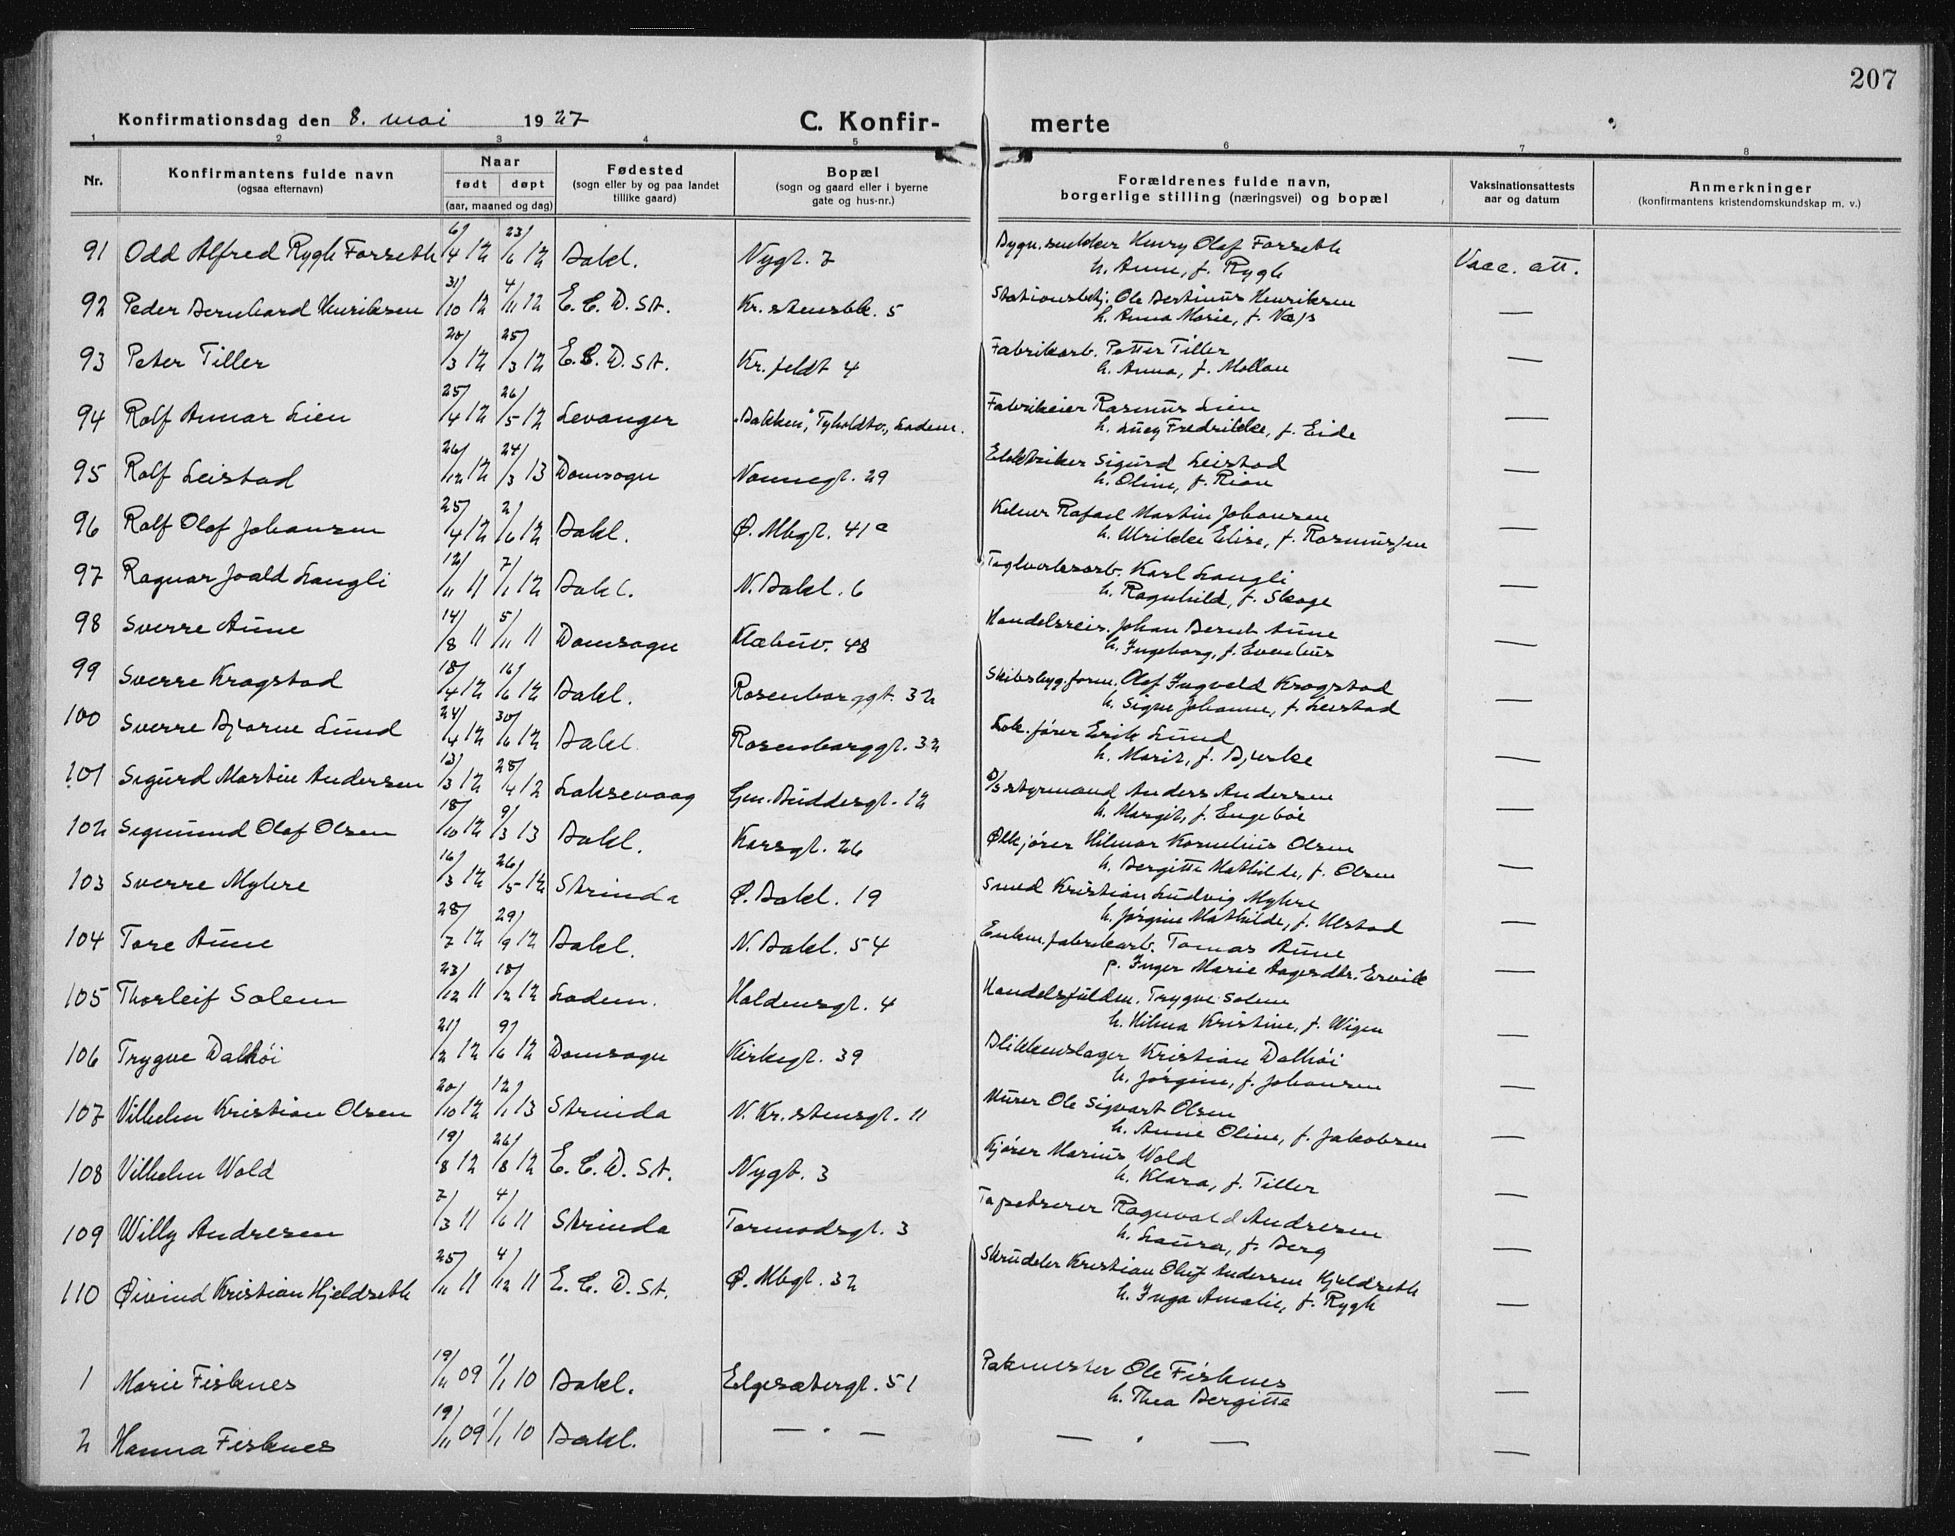 207
Konfirmationsdag den 8. mai 1927 C. Konfir- merte
1 2 3 4 5 6 7 8
Nr. Konfirmantens fulde navn (ogsaa efternavn) Naar født døpt (aar, maaned og dag) Fødested (sogn eller by og paa landet tillike gaard) Bopæl (sogn og gaard eller i byerne gate og hus-nr.) Forældrenes fulde navn, borgerlige stilling (næringsvei) og bopæl Vaksinationsattests aar og datum Anmerkninger (konfirmantens kristendomskundskap m. v.)
91 Odd Alfred Rygh Forseth 6/4 12 23/6 12 Bakl. Nygt. 7 Bygn.snekker Henry Olaf Forseth
h. Anne, f. Rygh Vacc. att.
92 Peder Bernhard Henriksen 31/10 12 4/11 12 E. C. D. St. Kr.stensbk. 5 Stationsbetj. Ole Bertinus Henriksen
h. Anna Marie, f. —
93 Peter Tiller 20/3 12 25/3 12 E. C. D. St. Kr. feldt 4 Fabrikarb. Petter Tiller
h. Anna, f. Mollan —
94 Rolf Annar Lien 25/4 12 26/5 12 Levanger "Bakken", Tyholdtv., Ladem. Fabrikeier Rasmus Lien
h. Lucy Fredrikke, f. Eide —
95 Rolf Leistad 26/12 12 24/3 13 Domsogn Nonnegt. 29 Elektriker Sigurd Leistad
h. Oline, f. Rian —
96 Rolf Olaf Johansen 25/4 12 2/6 12 Bakl. Ø. Mbgt. 41a Kelner Rafael Martin Johansen
h. Ulrikke Elise, f. Rasmussen —
97 Ragnar Joald Langli 12/11 11 7/1 12 Bakl. N. Bakl. 6 Teglverksarb. Karl Langli
h. Ragnhild, f. Skage —
98 Sverre Aune 14/8 11 5/11 11 Domsogn Klæbuv. 48 Handelsreis. Johan Bernh Aune
h. Ingeborg, f. Evenhus —
99 Sverre Kragstad 18/4 12 16/6 12 Bakl. Rosenborggt. 32 Skibsbyg.form. Olaf Ingvald Kragstad
h. Signe Johanne, f. Leistad —
100 Sverre Bjarne Lund 24/4 12 30/6 12 Bakl. Rosenborggt. 32 Lok. fører Erik Lund
h. Marit, f. Bjerke —
101 Sigurd Martin Andersen 13/3 12 28/4 12 Laksevaag Gen. Buddesgt. 12 D/s styrmand Anders Andersen
h. Margit, f. Engebøe —
102 Sigmund Olaf Olsen 18/10 12 9/3 13 Bakl. Korsgt. 26 Ølkjører Hilmar Kornelius Olsen
h. Bergitte Mathilde, f. Olsen —
103 Sverre Myhre 16/3 12 26/5 12 Strinda Ø. Bakl. 19 Smed Kristian Ludvig Myhre
h. Jørgine Mathilde, f. Ulstad —
104 Tore Aune 28/7 12 29/9 12 Bakl. N. Bakl. 54 Enkm. fabrikarb. Tomas Aune
p. Inger Marie Aagesdtr. Ervik —
105 Thorleif Solem 23/12 11 18/2 12 Ladem. Haldensgt. 4 Handelsfuldm. Trygve Solem
h. Hilma Kristine, f. Wigen —
106 Trygve Dalhöi 21/2 12 9/6 12 Domsogn Kirkegt. 39 Blikkenslager Kristian Dalhöi
h. Jørgine, f. Johansen —
107 Vilhelm Kristian Olsen 20/10 12 12/1 13 Strinda N. Kr.stensgt. 11 Murer Ole Sigvart Olsen
h. Anne Oline, f. Jakobsen —
108 Vilhelm Wold 19/8 12 26/8 12 E. C. D. St. Nygt. 3 Kjører Marius Wold
h. Klara, f. Tiller —
109 Willy Andresen 7/3 11 4/6 11 Strinda Tormodsgt. 3 Tapetserer Ragnvald Andresen
h. Laura, f. Berg —
110 Øivind Kristian Hjeldseth 25/11 11 4/12 11 E. C. D. St. Ø. Mbgt. 32 Skrædder Kristian Oluf Andersen Hjeldseth
h. Inga Amalie, f. Rygh —
1 Marie Fisknes 19/11 09 1/1 10 Bakl. Elgesætergt. 51 Pakmester Ole Fisknes
h. Thea Bergitte —
2 Hanna Fisknes 19/11 09 1/1 10 Bakl. — " — — " — —